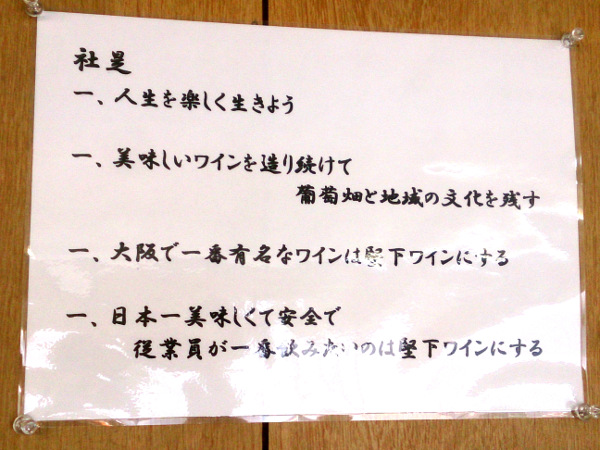 社是
一、人生を楽しく生きよう
一、美味しいワインを造り続けて
葡萄畑と地域の文化を残す
一、大阪で一番有名なワインは堅下ワインにする
一、日本一美味しくて安全で
従業員が一番飲みたいのは堅下ワインにする